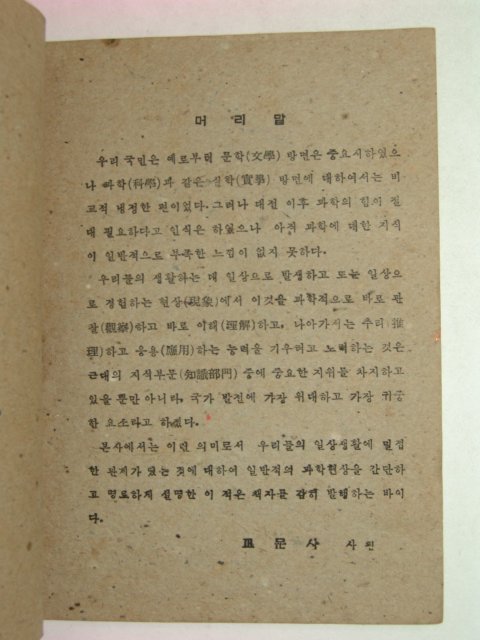 머리말
우리 국민은 예로부터 문학(文學) 방면은 중요시하였으
나 과학(科學)과 같은 실학(實學) 방면에 대하여서는 비
교적 냉정한 편이었다. 그러나 대전 이후 과학의 힘이 절
대 필요하다고 인식은 하였으나 아직 과학에 대한 지식
이 일반적으로 부족한 느낌이 없지 못하다.
우리들의 생활하는 데 일상으로 발생하고 또는 일상으
로 경험하는 현상(現象)에서 이것을 과학적으로 바로 관
찰(觀察)하고 바로 이해(理解)하고, 나아가서는 추리(推
理)하고 응용(應用)하는 능력을 기우려고 노력하는 것은
근대의 지적부문(知識部門) 중에 중요한 지위를 차지하고
있을 뿐만 아니라, 국가 발전에 가장 위대하고 가장 귀중
한 요소라고 하겠다.
본사에서는 이런 의미로서 우리들의 일상생활에 밀접
한 관계가 있는 것에 대하여 일반적의 과학현상을 간단하
고 명료하게 설명한 이 적은 책자를 감히 발행하는 바이
다.
문사 사편